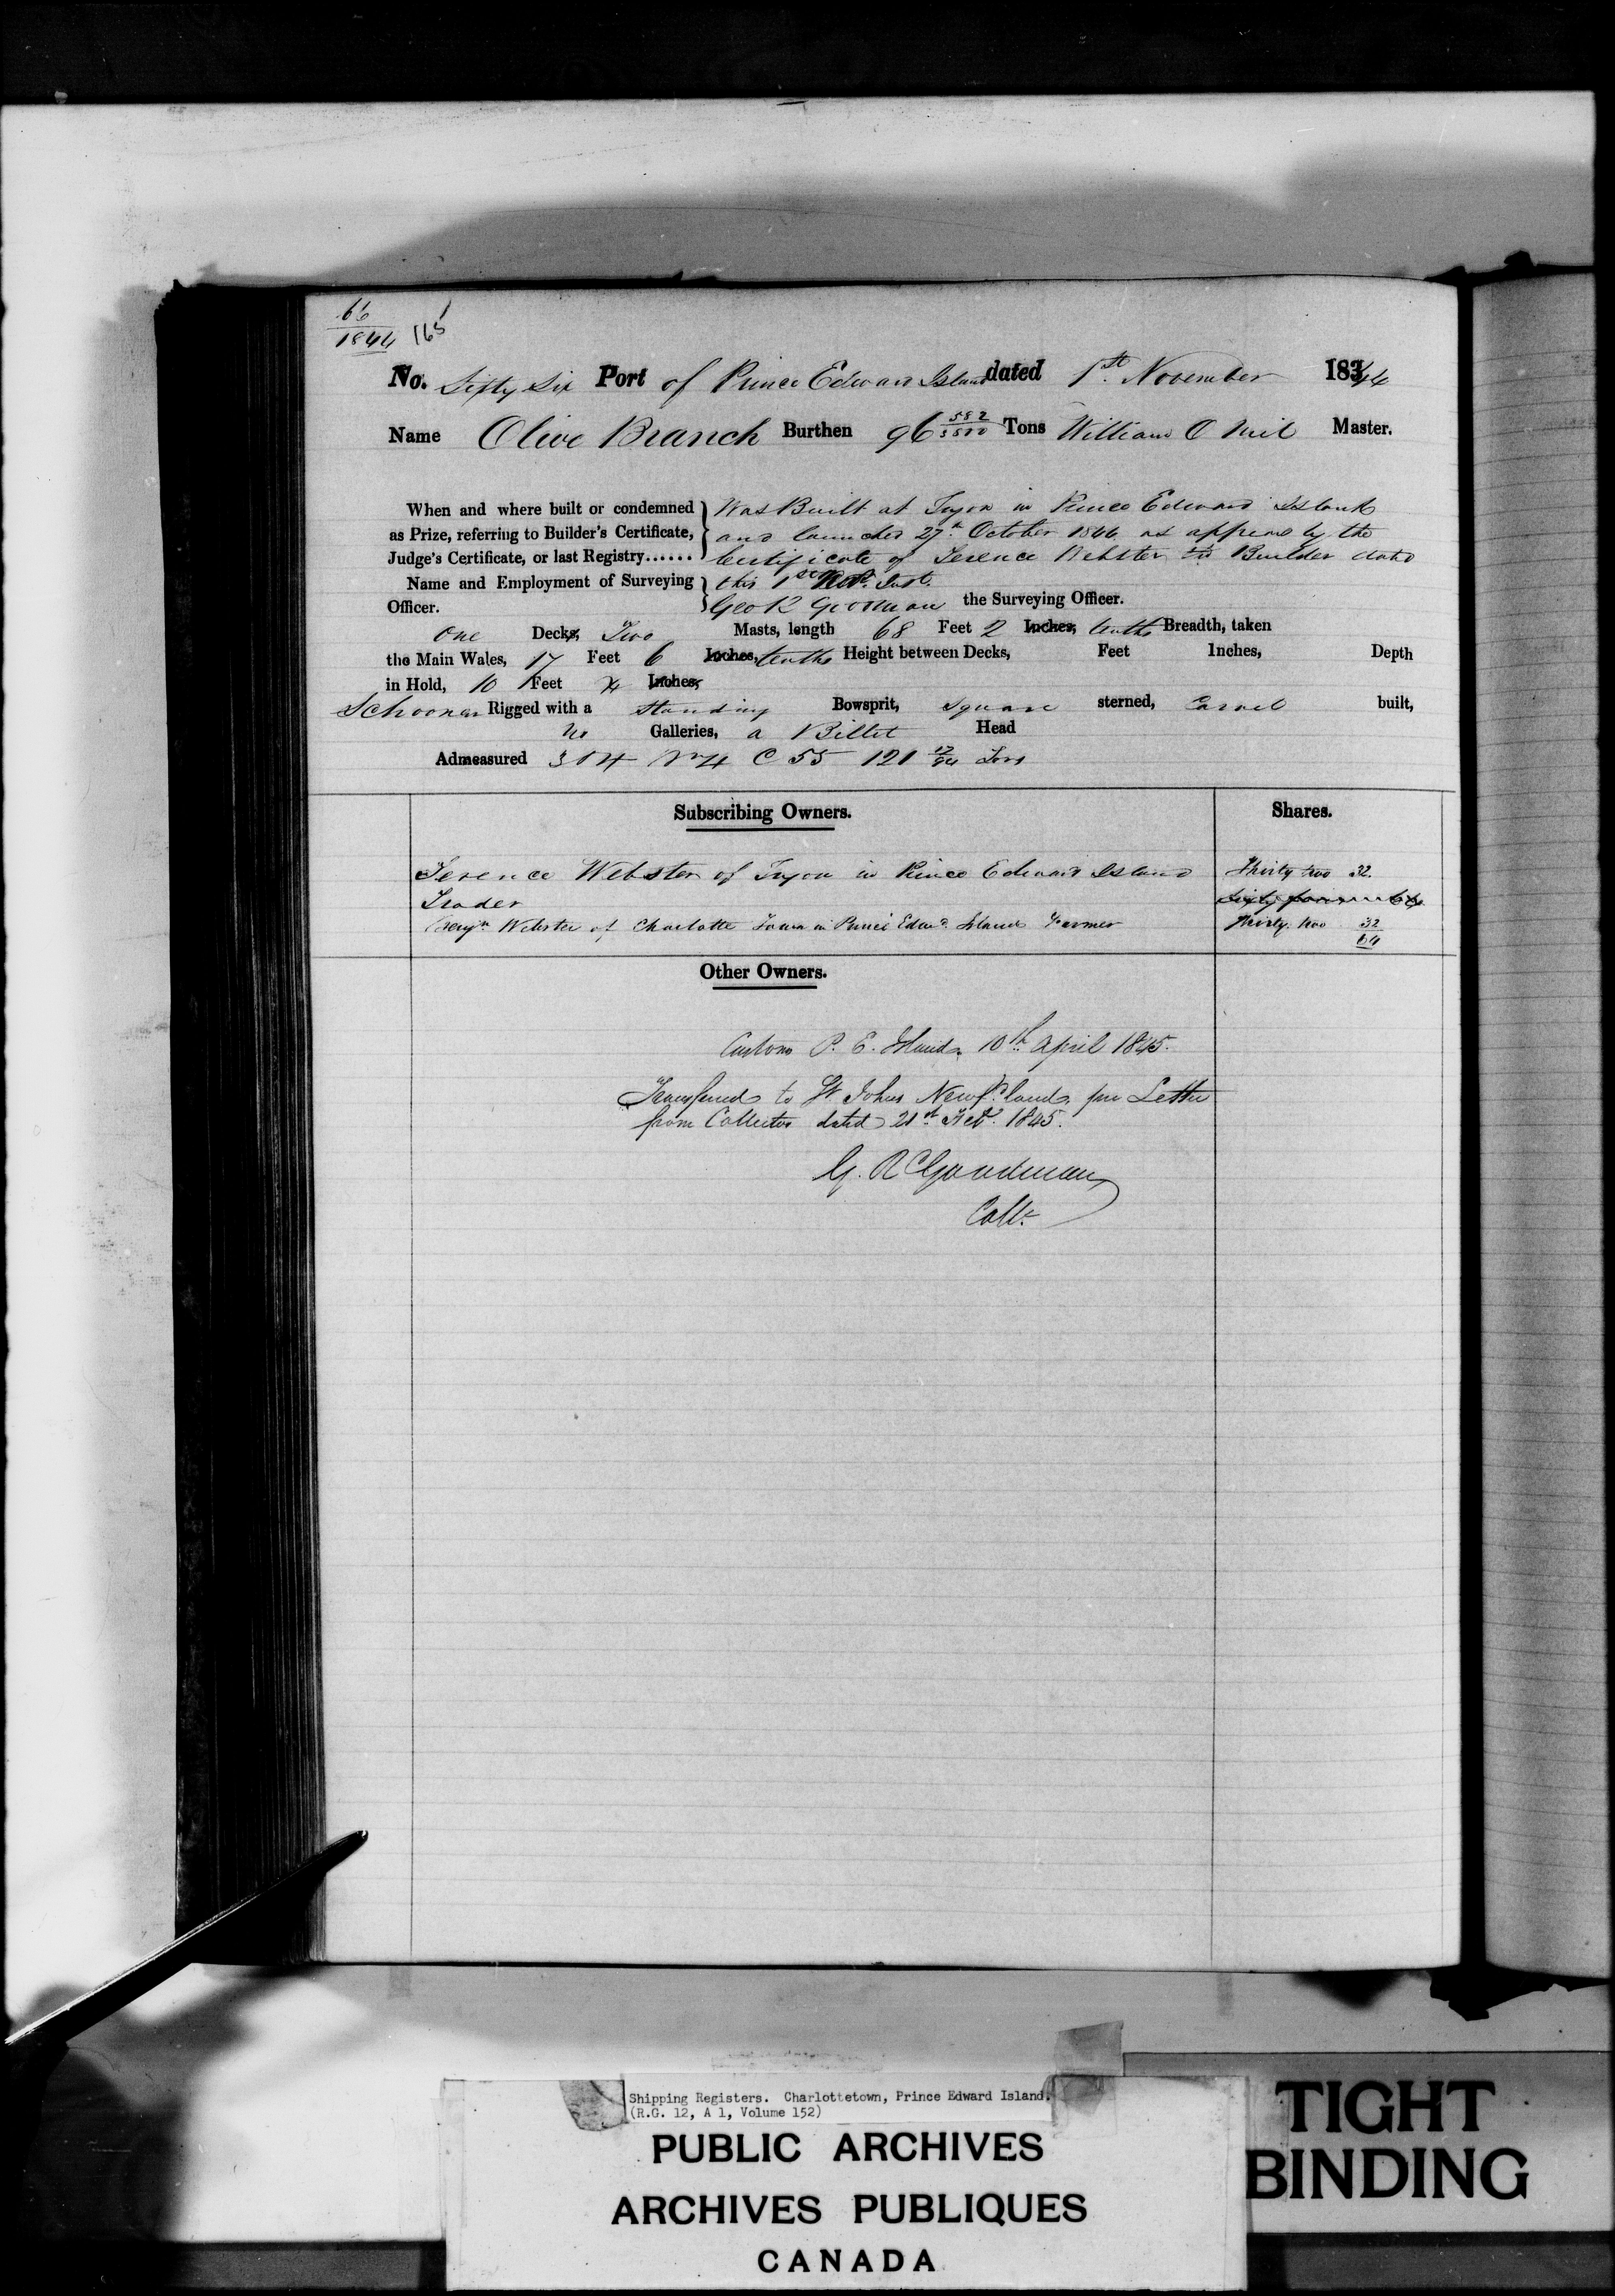 66
1844 165
No. Sixty Six Port of Prince Edward Island dated 1st. November 1844
Name Olive Branch Burthen 96 582/3500 Tons William O Neil Master.
When and where built or condemned Was Built at Tryon in Prince Edward Island
as Prize, referring to Builder's Certificate, and launched 27th. October 1844 as appears by the
Judge's Certificate, or last Registry...... Certificate of Terence Webster the Builder dated
Name and Employment of Surveying this 1st Inst.
Officer. Geo R Goodman the Surveying Officer.
One Decks, Two Masts, length 68 Feet 2 Inches, tenths Breadth, taken
the Main Wales, 17 Feet 6 Inches, tenths Height between Decks, Feet Inches, Depth
in Hold, 10 Feet Inches,
Schooner Rigged with a standing Bowsprit, square sterned, Carvel built,
No Galleries, a Billet Head
Admeasured C 55 121 Tons
Subscribing Owners. Shares.
Terence Webster of Tryon in Prince Edward Island Thirty two 32
Trader Sixty four 64
Benjn Webster of Charlotte Town in Prince Edwd. Island Farmer Thirty two 32
64
Other Owners.
Customs P. E. Island 10th April 1845.
Transferred to St Johns Newfd.land, per Letter
from Collector dated 21st Feby. 1845.
G. R Goodman
Collr.
Shipping Registers. Charlottetown, Prince Edward Island.
(R.G. 12, A 1, Volume 152)
PUBLIC ARCHIVES
ARCHIVES PUBLIQUES
CANADA
TIGHT
BINDING